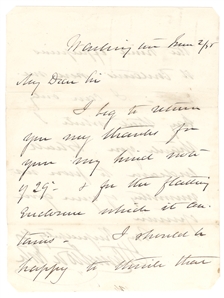 Washington June 2/58
My Dear Sir
I beg to return
you my thanks for
your my kind note
of 29th & for the flattering
enclosure which it con-
tains - I should be
happy to